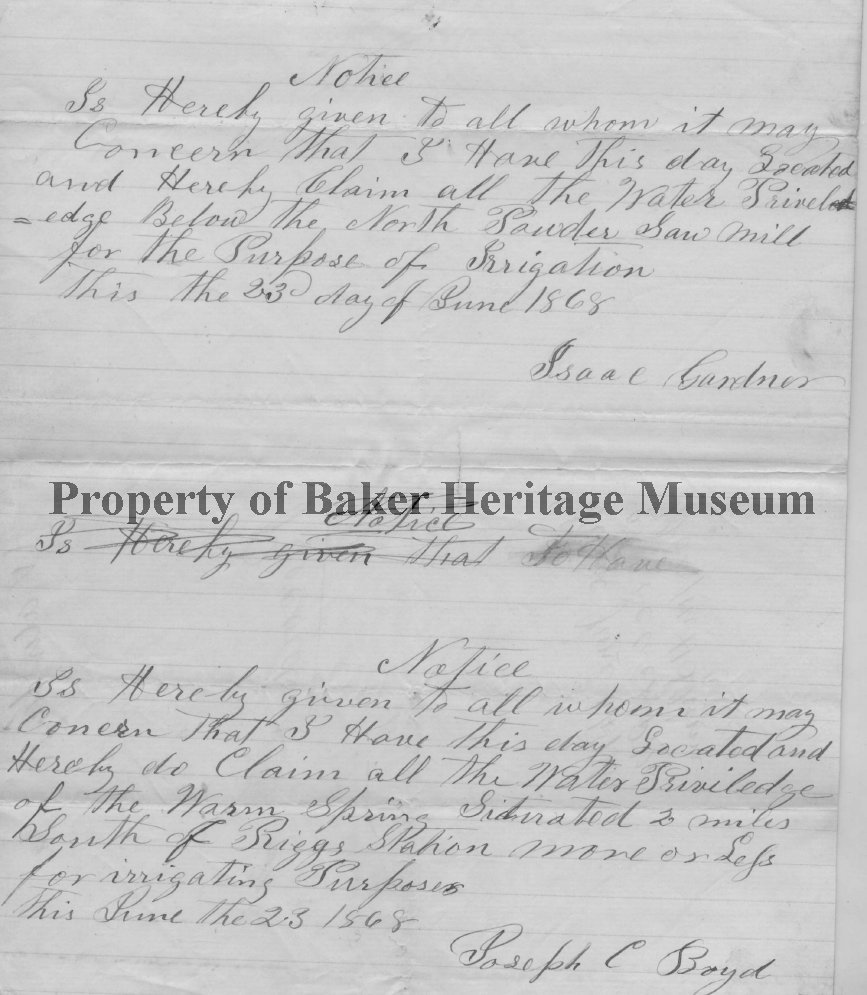 Notice
Is Hereby given to all whom it may
Concern that I Have This day Located
and Hereby Claim all the Water Priveled
=edge Below the North Powder Saw mill
for the Purpose of Irrigation
This the 23 day of June 1868
Isaac Gardner
Property of Baker Heritage Museum
Notice
Is Hereby given that I Have
Notice
Is Hereby given to all whom it may
Conern that I Have this day Located and
Hereby do Claim all the Water Priviledge
of the Warm Spring Siturated 2 miles
South of Riggs Station more or Less
for irrigating Purposes
this June the 23 1868
Joseph C Boyd